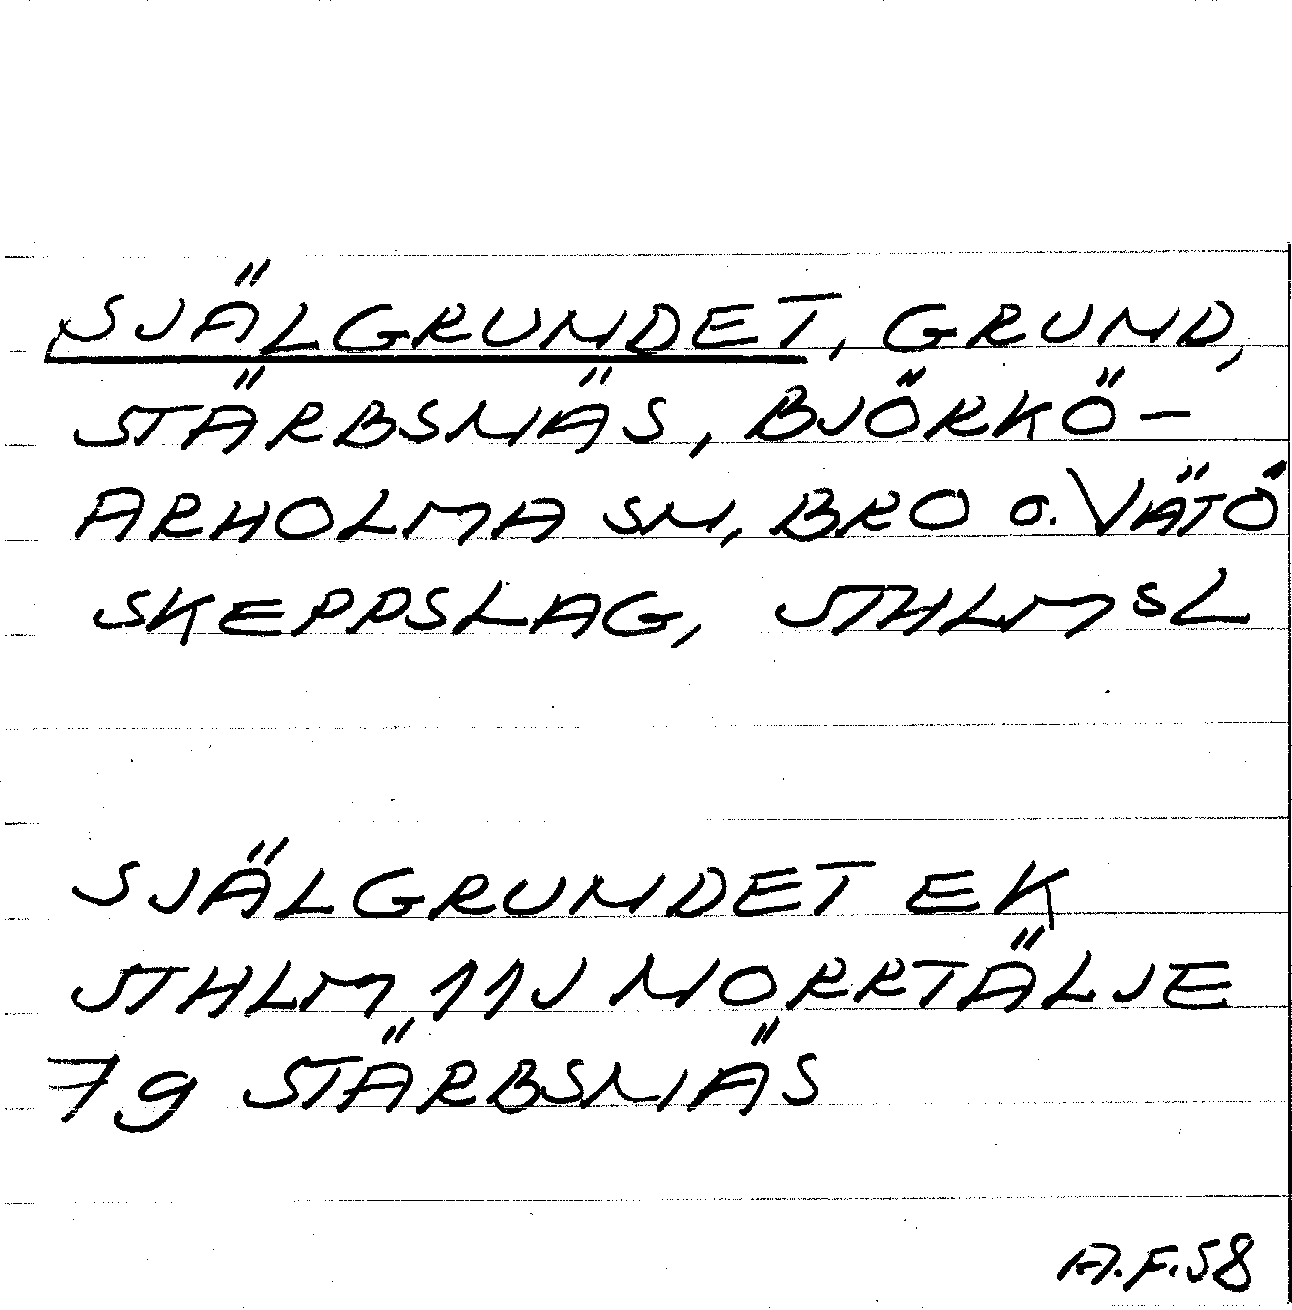 SJÄLGRUNDET, GRUND,
STÄRBSNÄS, BJÖRKÖ-
ARHOLMA SN, BRO o. VÄTÖ
SKEPPSLAG, STHLMS L
SJÄLGRUNDET EK
STHLM 11J NORRTÄLJE
7g STÄRBSNÄS
A.F. 58